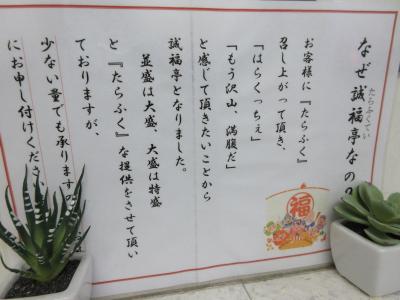 なぜ誠福亭なの?
たらふくてい
お客様に『たらふく』
召し上がって頂き、
「はらくっちぇ」
「もう沢山、満腹だ」
と感じて頂きたいことから
誠福亭となりました。
並盛は大盛、大盛は特盛
と『たらふく』な提供をさせて頂い
ておりますが、
少ない量でも承りますの
にお申し付けくださ
福